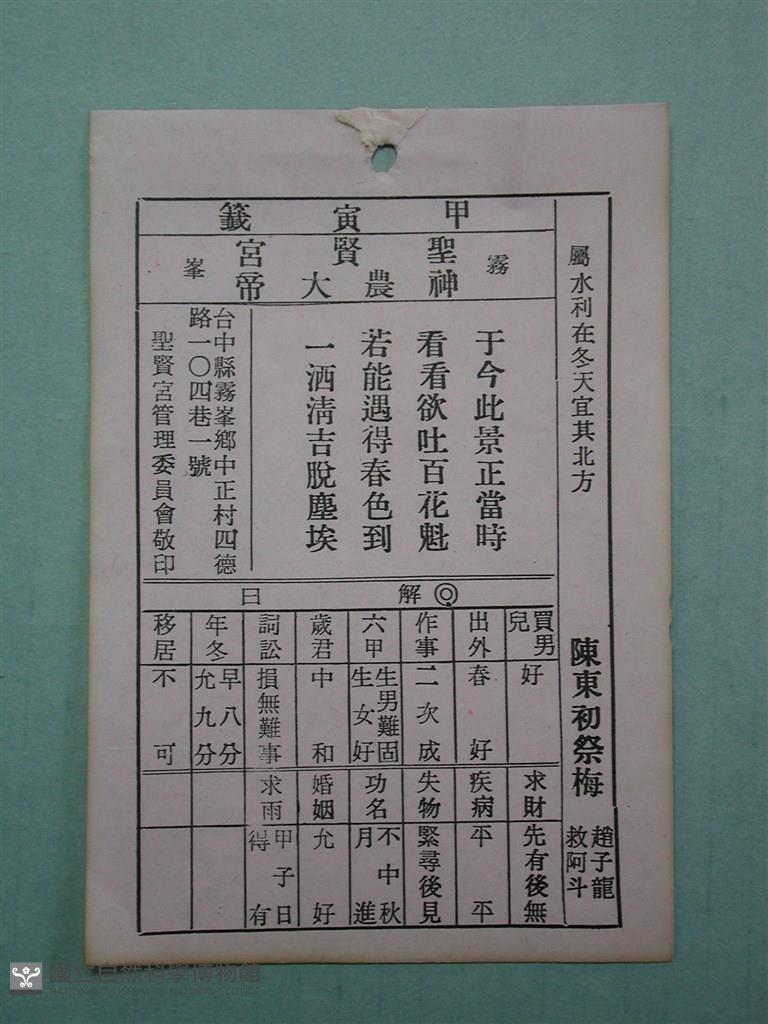 甲寅籤
霧峯
聖賢宮
神農大帝
屬水利在冬天宜其北方
陳東初祭梅
趙子龍救阿斗
于今此景正當時
看看欲吐百花魁
若能遇得春色到
一洒清吉脫塵埃
台中縣霧峯鄉中正村四德
路一〇四巷一號
聖賢宮管理委員會敬印
◎解曰
買男兒 好
出外 春好
作事 二次成
六甲 生男難固生女好
歲君 中和
詞訟 損無難事
年冬 早八分允九分
移居 不可
求財 先有後無
疾病 平平
失物 緊尋後見
功名 不中秋月進
婚姻 允好
求雨 甲子日得有
國立自然科學博物館